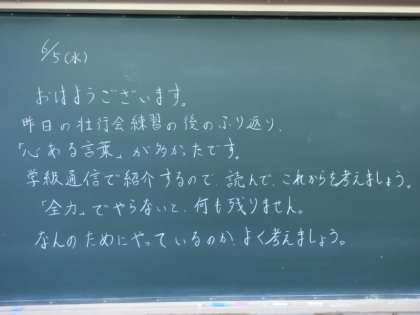 6/5(水)
おはようございます。
昨日の壮行会練習の後のふり返り、
「心ある言葉」が多かったです。
学級通信で紹介するので、読んで、これからを考えましょう。
「全力」でやらないと、何も残りません。
なんのためにやっているのか、よく考えましょう。